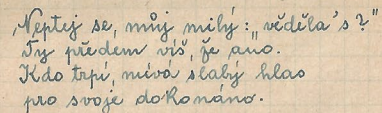 ‚Neptej se, můj milý: „věděla's?"
Ty předem víš, že ano.
Kdo trpí, mívá slabý hlas
pro svoje dokonáno.